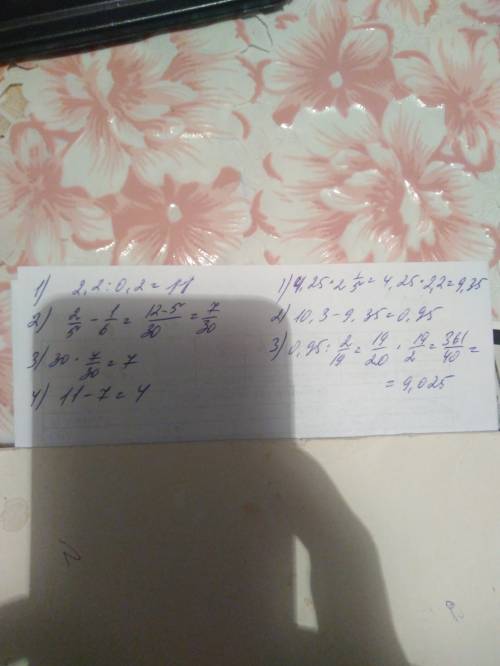 1) 2,2:0,2=11
2) 2/5 - 1/6 = 12-5/30 = 7/30
3) 30 · 7/30 = 7
4) 11-7=4
1) 4,25 · 2 1/5 = 4,25 · 2,2 = 9,35
2) 10,3-9,35=0,95
3) 0,95 : 2/19 = 19/20 · 19/2 = 361/40 =
= 9,025